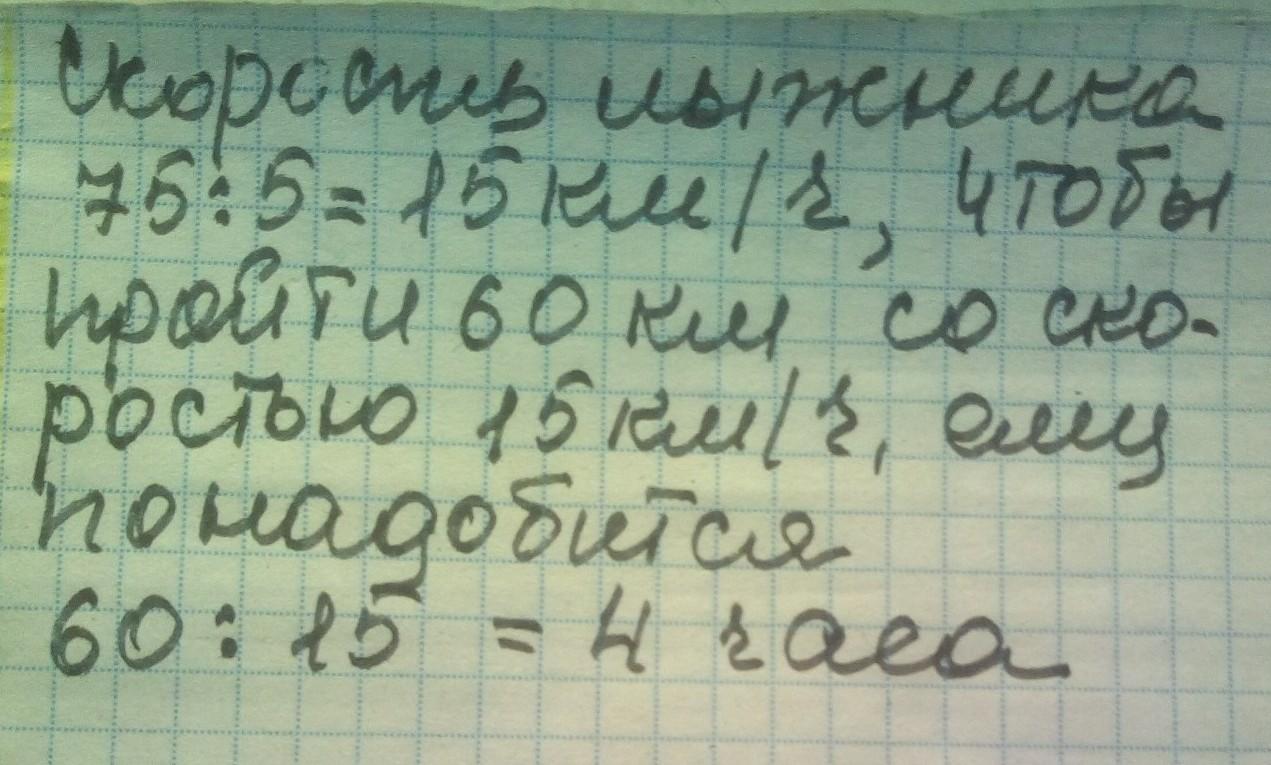 Скорость лыжника
75:5=15км/ч, чтобы
пройти 60 км со ско-
ростью 15км/ч, ему
понадобится
60:15 = 4 часа